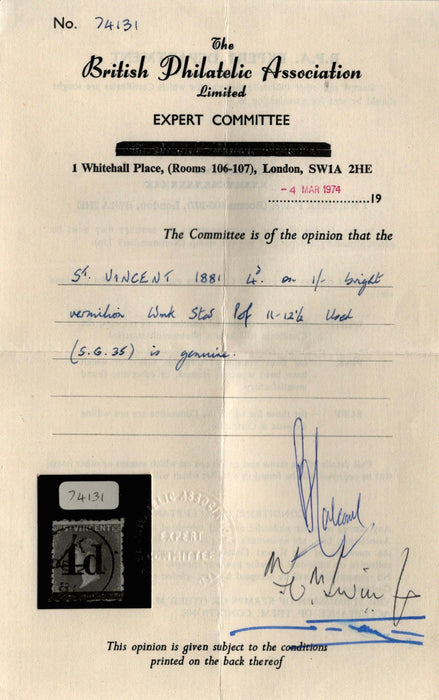 No. 74131
The
British Philatelic Association
Limited
EXPERT COMMITTEE
1 Whitehall Place, (Rooms 106-107), London, SW1A 2HE
- 4 MAR 1974
19
The Committee is of the opinion that the
St. VINCENT 1881 4d. on 1/- bright
vermilion Wmk Star Perf 11-12½ Used
(S.G.35) is genuine.
74131
ST VINCENT
4d
EXPERT
COMMITTEE
This opinion is given subject to the conditions
printed on the back thereof